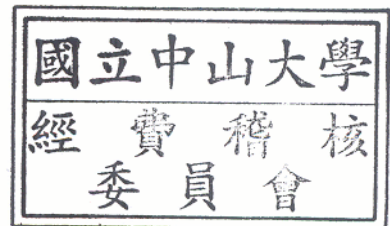 國立中山大學
經費稽核
委員會